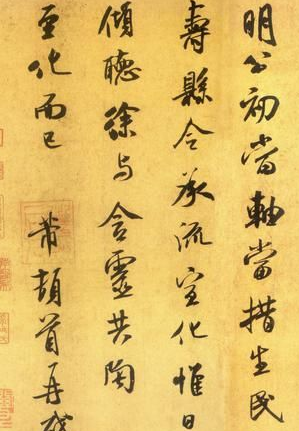 明公初當軸當措生民
壽縣令承流宣化惟日
傾聽徐与含靈共陶
至化而已　芾頓首再